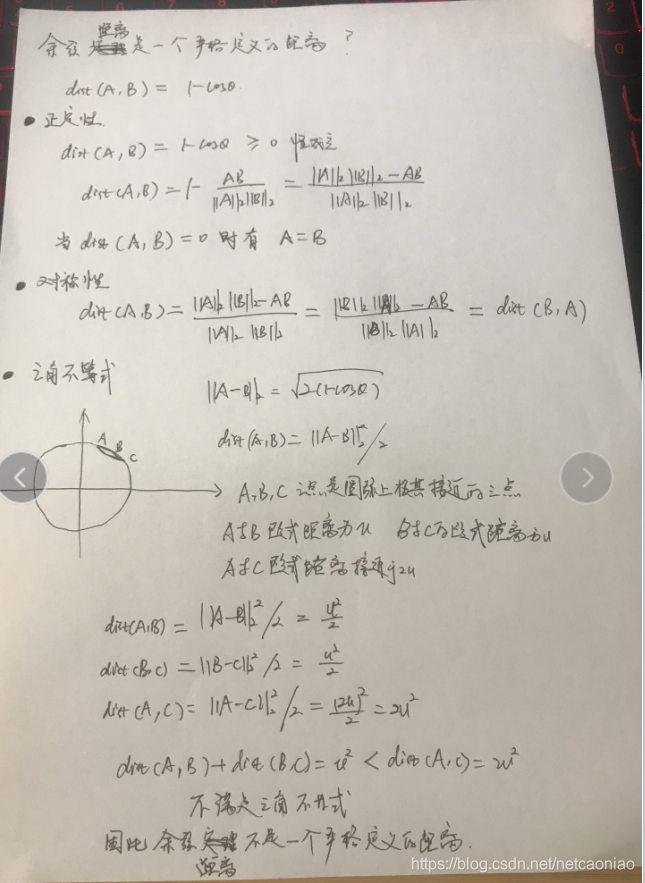 余弦距离是一个严格定义的距离?
dist(A,B) = 1-cosθ
• 正定性.
dist(A,B) = 1-cosθ ≥ 0 恒成立
dist(A,B) = 1- AB/||A||₂||B||₂ = ||A||₂||B||₂-AB/||A||₂||B||₂
当 dist(A,B)=0 时有 A=B
• 对称性
dist(A,B) = ||A||₂||B||₂-AB/||A||₂||B||₂ = ||B||₂||A||₂-AB/||B||₂||A||₂ = dist(B,A)
• 三角不等式
||A-B||₂ = √2(1-cosθ)
dist(A,B) = ||A-B||₂²/2
A B C
A,B,C 三点是圆弧上极其接近的三点
A与B欧式距离为u B与C的欧式距离为u
A与C欧式距离接近于2u
dist(A,B) = ||A-B||₂²/2 = u²/2
dist(B,C) = ||B-C||₂²/2 = u²/2
dist(A,C) = ||A-C||₂²/2 = (2u)²/2 = 2u²
dist(A,B)+dist(B,C) = u² < dist(A,C) = 2u²
不满足三角不等式
因此余弦距离不是一个严格定义的距离.
https://blog.csdn.net/netcaoniao